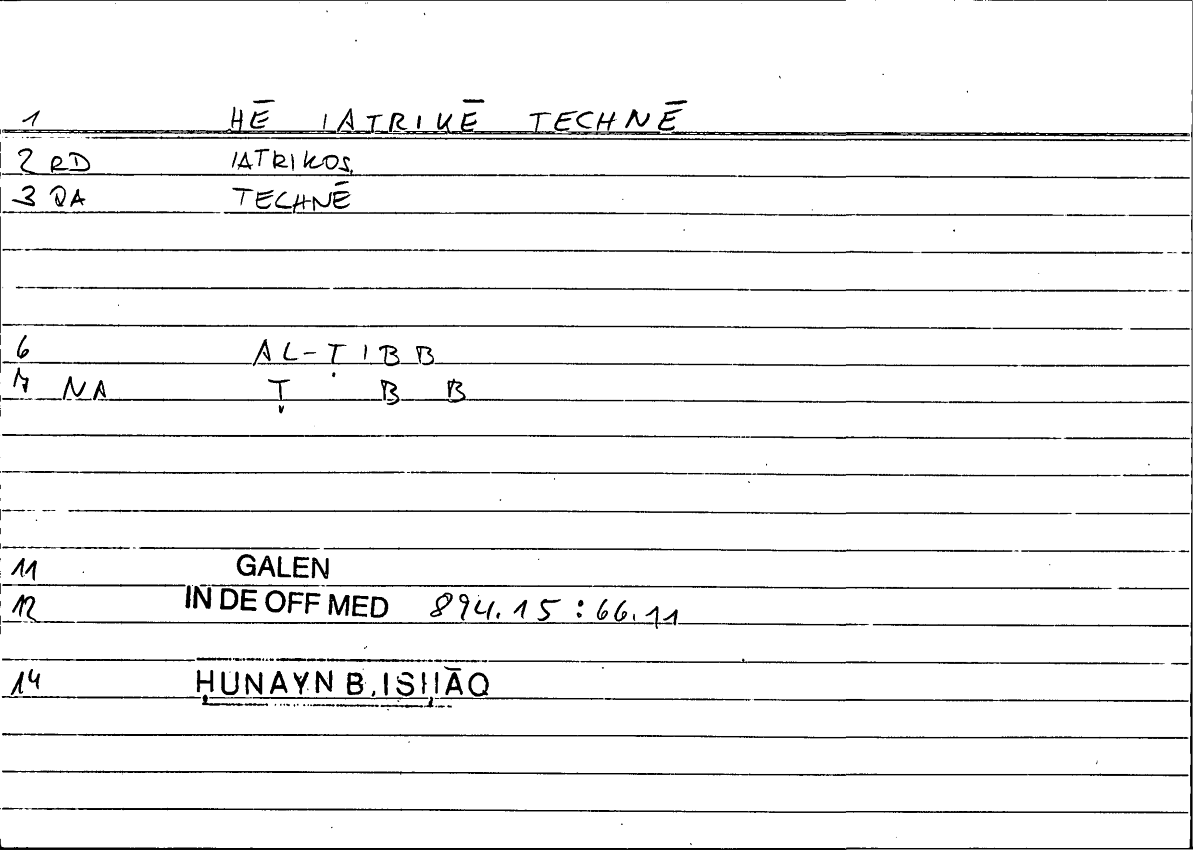 1 HĒ IATRIKĒ TECHNĒ
2 RD IATRIKOS
3 QA TECHNĒ
6 AL-ṬIBB
7 NA Ṭ B B
11 GALEN
12 IN DE OFF MED 894.15:66.11
14 ḤUNAYN B. ISḤĀQ